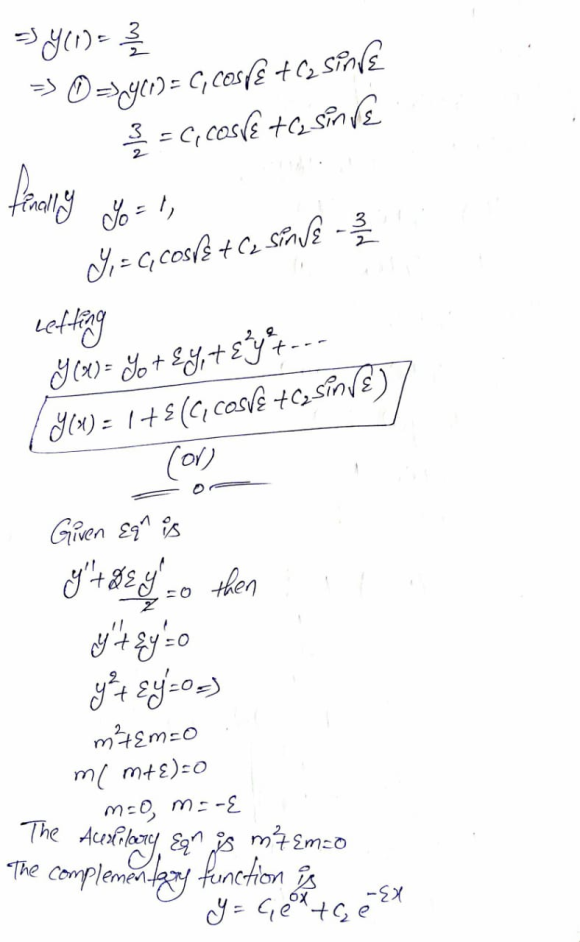 ⇒ y(1) = 3/2
⇒ ① ⇒ y(1) = C₁ cos√ε + C₂ sin√ε
3/2 = C₁ cos√ε + C₂ sin√ε
finally y₀ = 1,
y₁ = C₁ cos√ε + C₂ sin√ε - 3/2
Letting
y(x) = y₀ + εy₁ + ε²y² + ---
y(x) = 1 + ε(C₁ cos√ε + C₂ sin√ε)
(or)
Given Eqⁿ is
y'' + 2εy'/2 = 0 then
y'' + εy' = 0
y² + εy' = 0 ⇒
m² + εm = 0
m( m+ε) = 0
m = 0, m = -ε
The Auxilary Eqⁿ is m² + εm = 0
The complementary function is
y = C₁e^{0x} + C₂ e^{-εx}